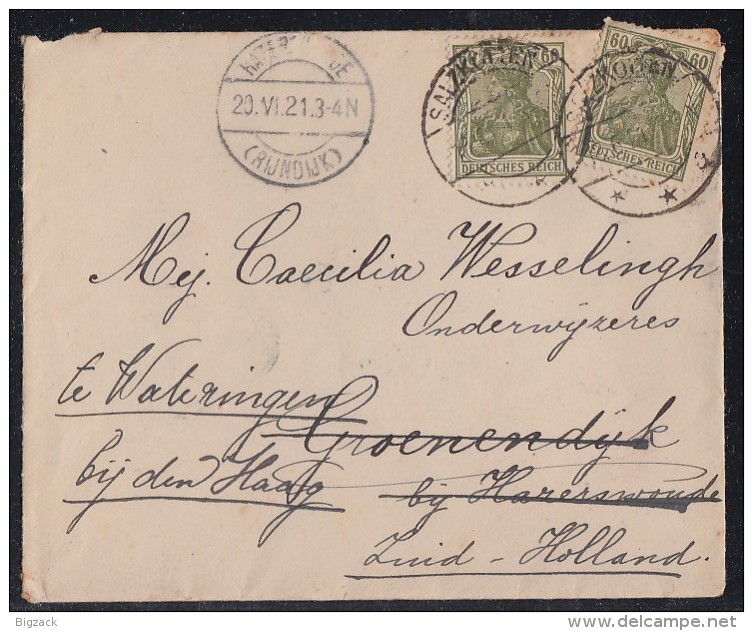 20.VI.21.3-4N
(RIJNDIJK)
SALZKOTTEN
60
DEUTSCHES REICH
60 60
DEUTSCHES REICH
Mej. Caecilia Wesselingh
Onderwijzeres
te Wateringen
Groenendijk
bij den Haag
bij Hazerswoude
Zuid-Holland.
Bigzack